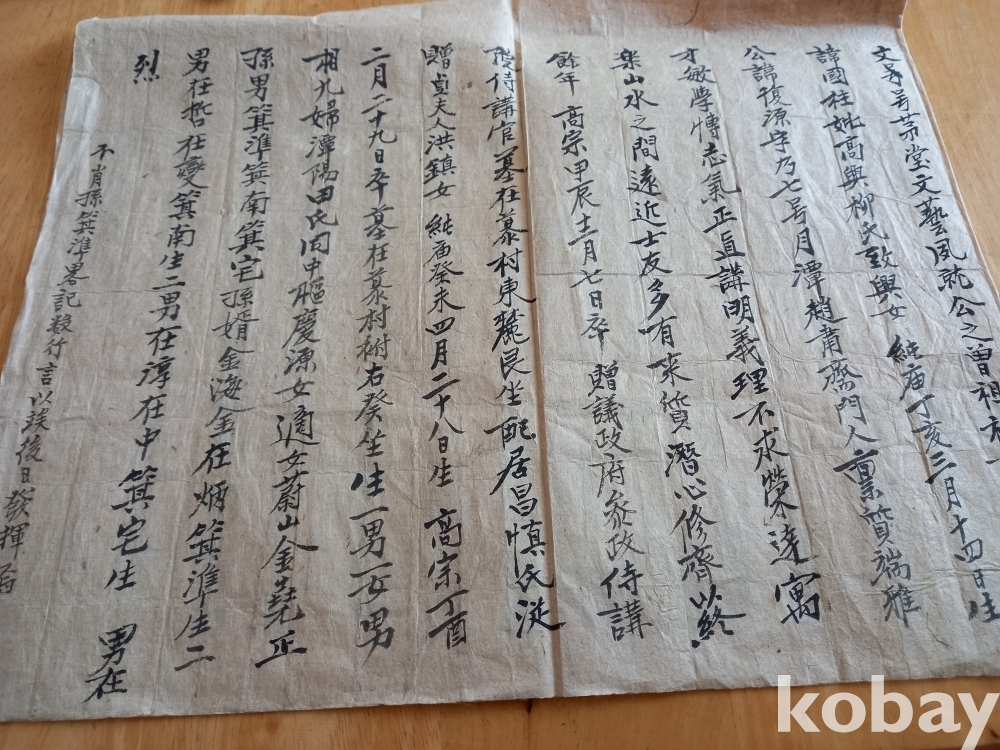 文 号茅堂文藝夙就公之曾祖
諱國柱妣高興柳氏致興女 純庙丁亥三月十四日生
公諱復源字乃七号月潭趙肅齋門人稟質端雅
才敏學博志氣正直講明義理不求榮達寓
樂山水之間遠近士友多有來質潛心修齊以終
餘年 高宗甲辰十二月七日卒 贈議政府參政侍講
院侍講官墓在慕村東麓艮坐配居昌愼氏
贈貞夫人洪鎭女 純庙癸未四月二十八日生 高宗丁酉
二月二十九日卒 墓在慕村祔右癸坐生一男一女男
相九婦潭陽田氏同中樞慶源女適女蔚山金堯正
孫男箕準箕南箕宅孫婿金海金在炳箕準生二
男在哲在燮箕南生二男在淳在中箕宅生 男在
烈
不肖孫箕準畧記數行言以俟後日發揮
kobay